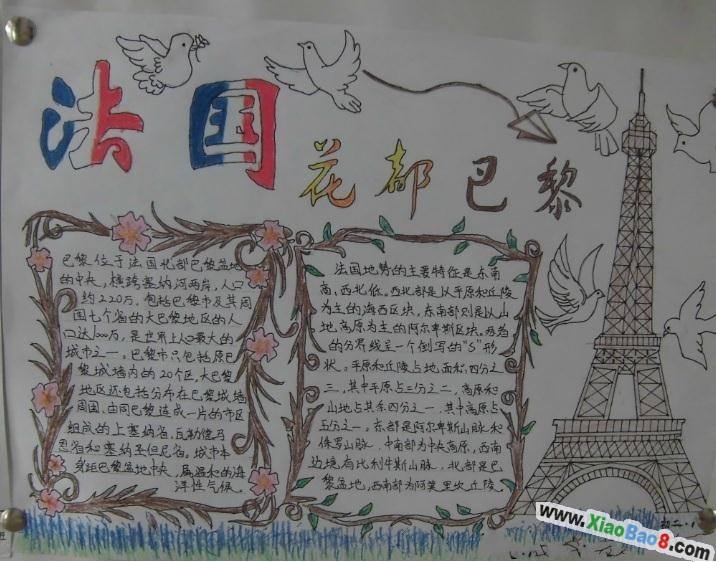 法国
花都巴黎
巴黎位于法国北部巴黎盆地
的中央，横跨塞纳河两岸，人口
约220万。包括巴黎市及其周
围七个省的大巴黎地区的人
口达1000万，是世界上人口最大的
城市之一。巴黎市只包括原巴
黎城墙内的20个区，大巴黎
地区还包括分布在巴黎城墙
周围，由同巴黎连成一片的市区
组成的上塞纳省、瓦勒德马
恩省和塞纳圣但尼省。城市本
身踞巴黎盆地中央，属温和的海
洋性气候。
法国地势的主要特征是东南
高，西北低。西北部是以平原和丘陵
为主的海西区块，东南部则是以山
地高原为主的阿尔卑斯区块。两者
的分界线呈一个倒写的“S”形
状。平原和丘陵占地面积四分之
三，其中平原占三分之二，高原和
山地占其余四分之一，其中高原占
五分之一。东部是阿尔卑斯山脉和
侏罗山脉，中南部为中央高原，西南
边境有比利牛斯山脉，北部是巴
黎盆地，西南部为阿基里坎丘陵。
www.XiaoBao8.com